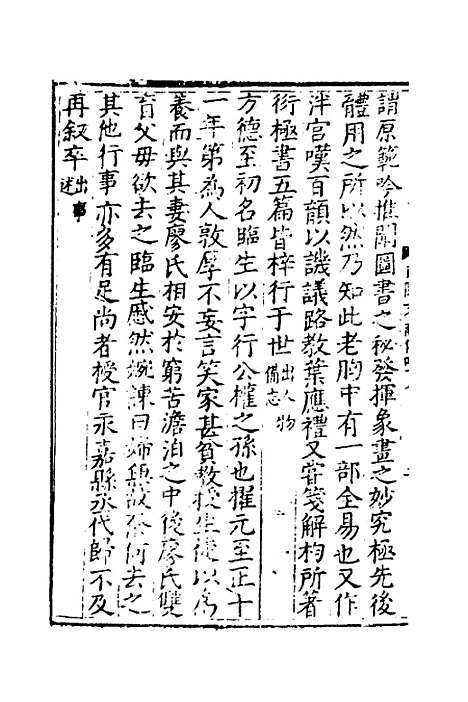 謂原範吟推闡圖書之秘發揮象畫之妙究極先後
體用之所以然乃知此老胸中有一部全易也又作
泮宮嘆百韻以譏議路教葉應禮又嘗箋解杓所著
衍極書五篇皆梓行于世出人物備志
方德至初名臨生以字行公權之孫也擢元至正十
一年第為人敦厚不妄言笑家甚貧教授生徒以為
養而與其妻廖氏相安於窮苦澹泊之中後廖氏雙
盲父母欲去之臨生慼然婉諫曰婦無故奈何去之
其他行事亦多有足尚者授官永嘉縣丞代歸不及
再叙卒出事述